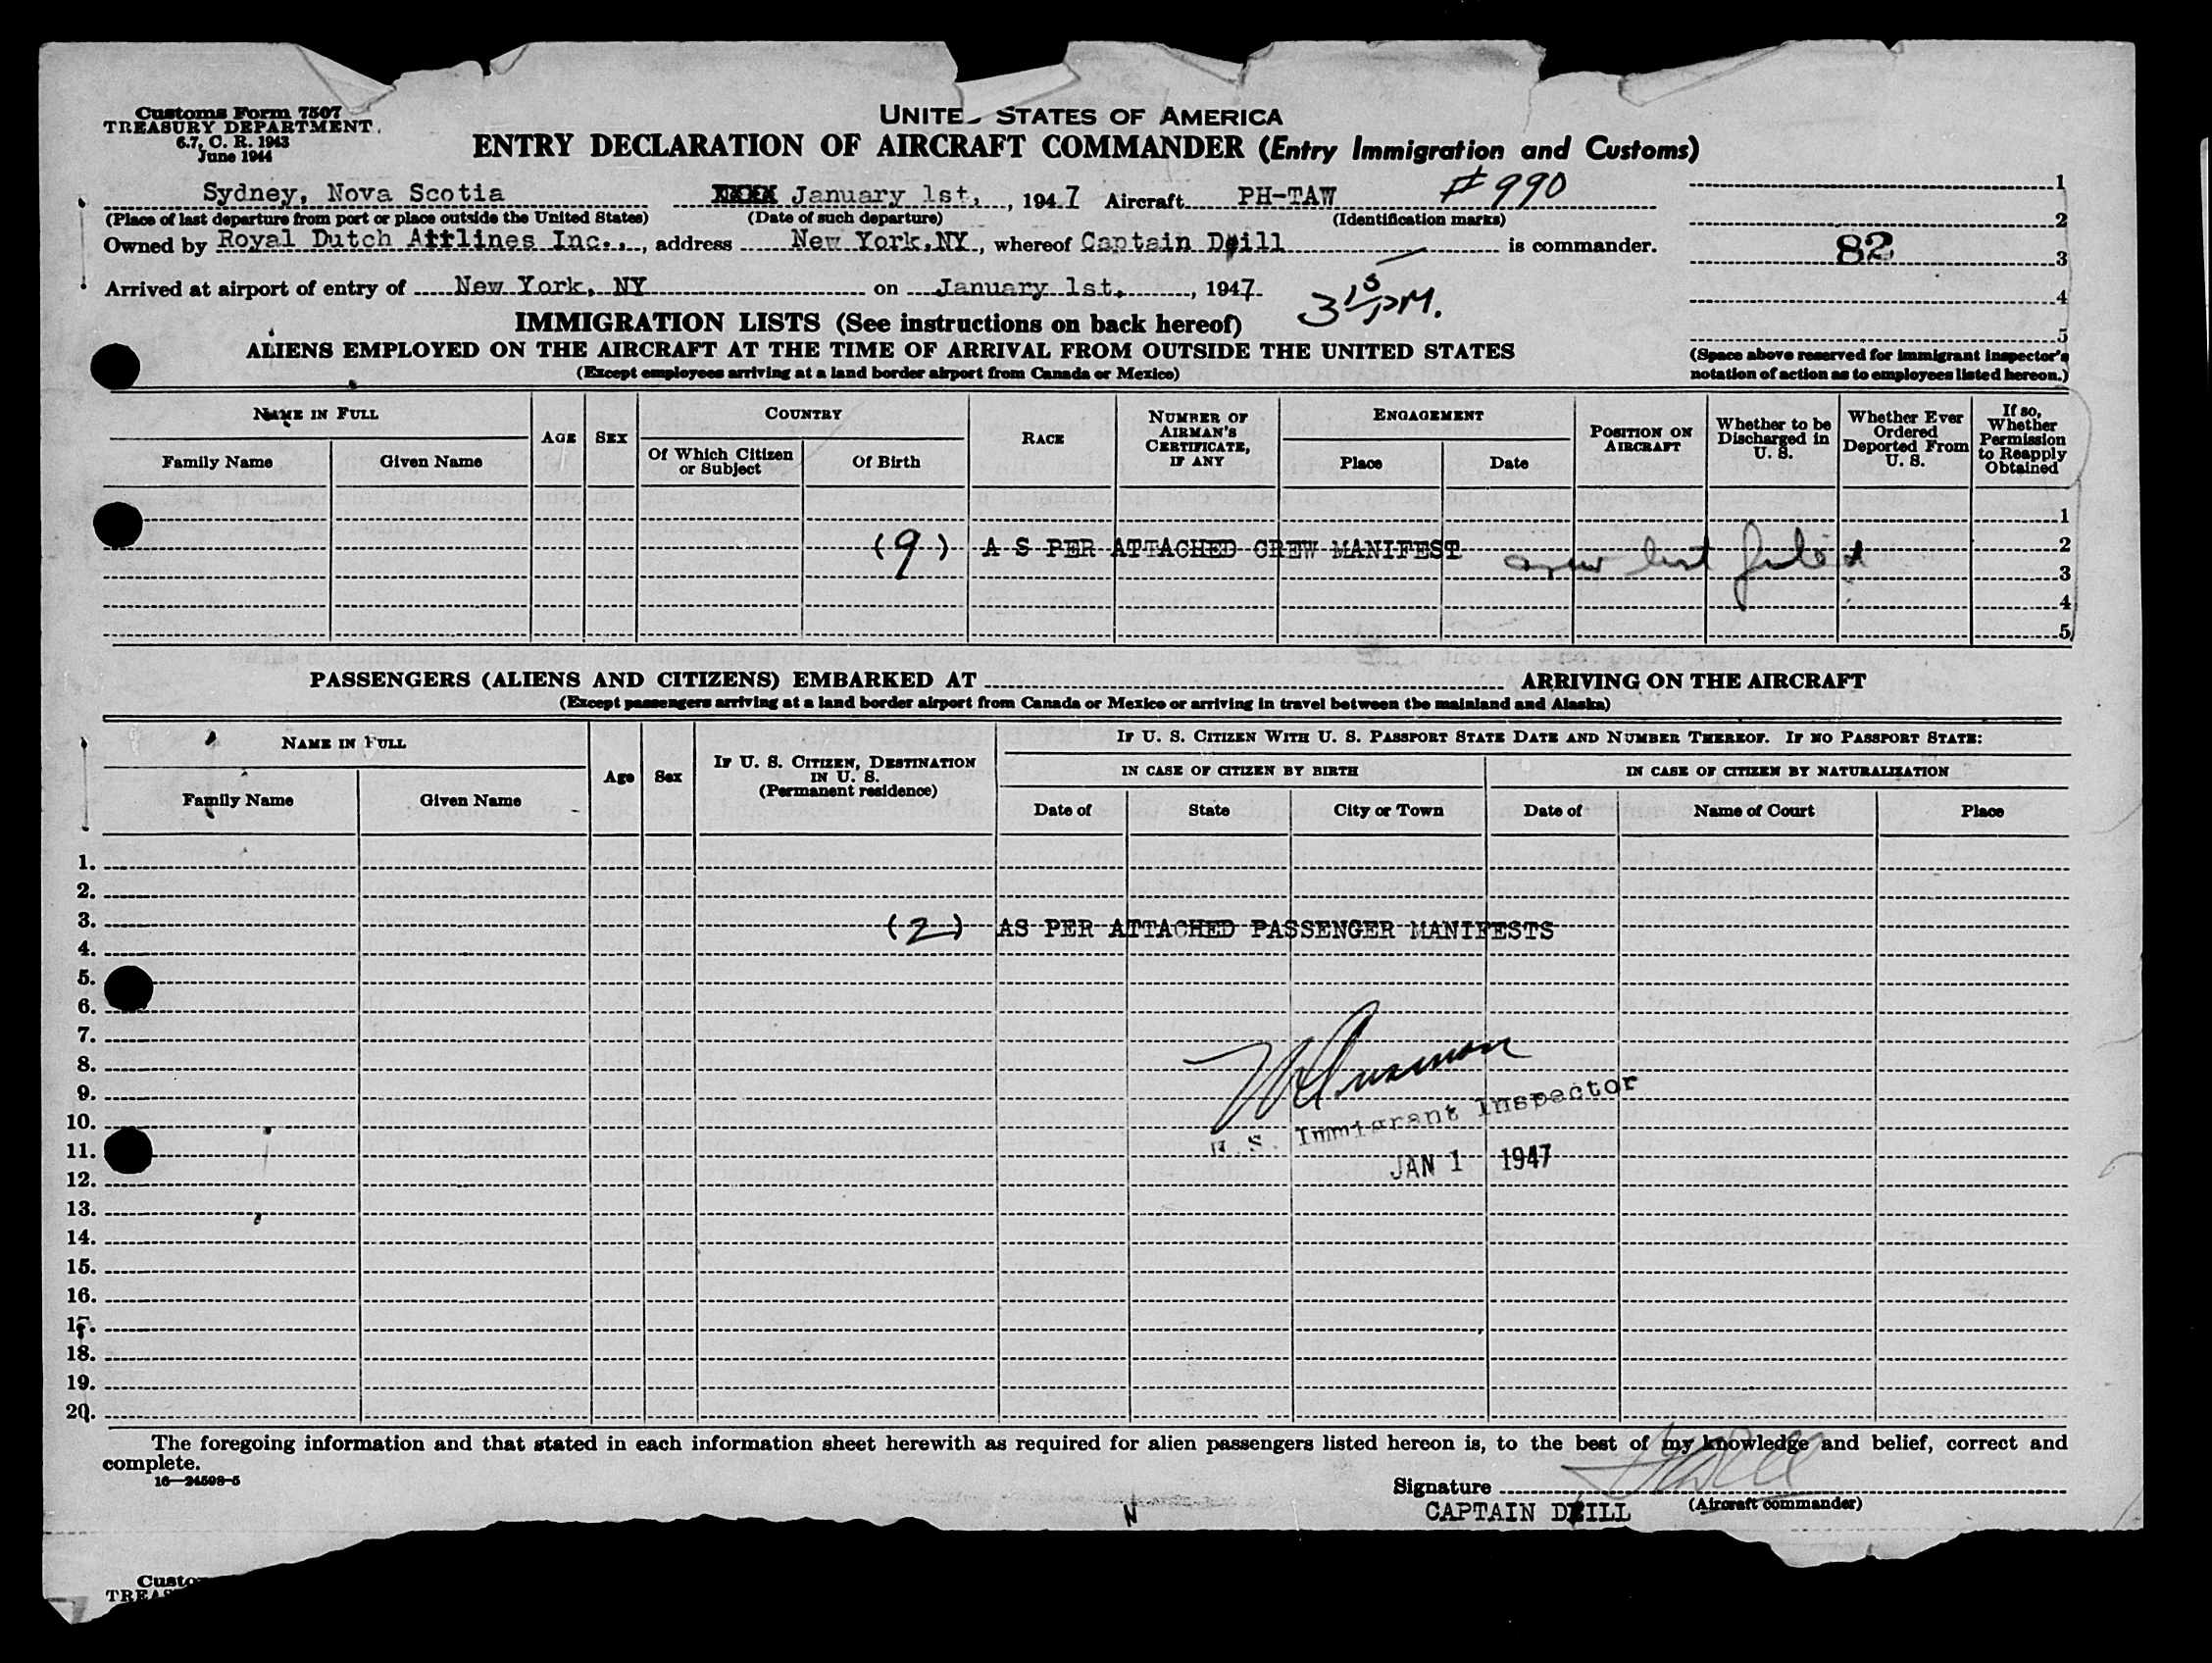 Customs Form 7507
TREASURY DEPARTMENT
6.7, C. R. 1943
June 1944
UNITED STATES OF AMERICA
ENTRY DECLARATION OF AIRCRAFT COMMANDER (Entry Immigration and Customs)
Sydney, Nova Scotia XXXX January 1st, , 1947 Aircraft PH-TAW #990
(Place of last departure from port or place outside the United States) (Date of such departure) (Identification marks)
Owned by Royal Dutch Airlines Inc., , address New York, NY , whereof Captain Deill is commander.
Arrived at airport of entry of New York, NY on January 1st, , 1947
3 15 PM.
1
2
82 3
4
5
(Space above reserved for immigrant inspector's notation of action as to employees listed hereon.)
IMMIGRATION LISTS (See instructions on back hereof)
ALIENS EMPLOYED ON THE AIRCRAFT AT THE TIME OF ARRIVAL FROM OUTSIDE THE UNITED STATES
(Except employees arriving at a land border airport from Canada or Mexico)
NAME IN FULL
Family Name Given Name
AGE SEX
COUNTRY
Of Which Citizen or Subject Of Birth
RACE
NUMBER OF AIRMAN'S CERTIFICATE, IF ANY
ENGAGEMENT
Place Date
POSITION ON AIRCRAFT
Whether to be Discharged in U. S.
Whether Ever Ordered Deported From U. S.
If so, Whether Permission to Reapply Obtained
1
(9) A S PER ATTACHED CREW MANIFEST crew list filed 2
3
4
5
PASSENGERS (ALIENS AND CITIZENS) EMBARKED AT ARRIVING ON THE AIRCRAFT
(Except passengers arriving at a land border airport from Canada or Mexico or arriving in travel between the mainland and Alaska)
NAME IN FULL
Family Name Given Name
Age Sex
IF U. S. CITIZEN, DESTINATION IN U. S. (Permanent residence)
IF U. S. CITIZEN WITH U. S. PASSPORT STATE DATE AND NUMBER THEREOF. IF NO PASSPORT STATE:
IN CASE OF CITIZEN BY BIRTH IN CASE OF CITIZEN BY NATURALIZATION
Date of State City or Town Date of Name of Court Place
1.
2.
3. (2) AS PER ATTACHED PASSENGER MANIFESTS
4.
5.
6.
7.
8.
9.
10.
U.S. Immigrant Inspector
11.
JAN 1 1947
12.
13.
14.
15.
16.
17.
18.
19.
20.
The foregoing information and that stated in each information sheet herewith as required for alien passengers listed hereon is, to the best of my knowledge and belief, correct and
complete.
16—24598-5
Signature
(Aircraft commander)
CAPTAIN DEILL
N